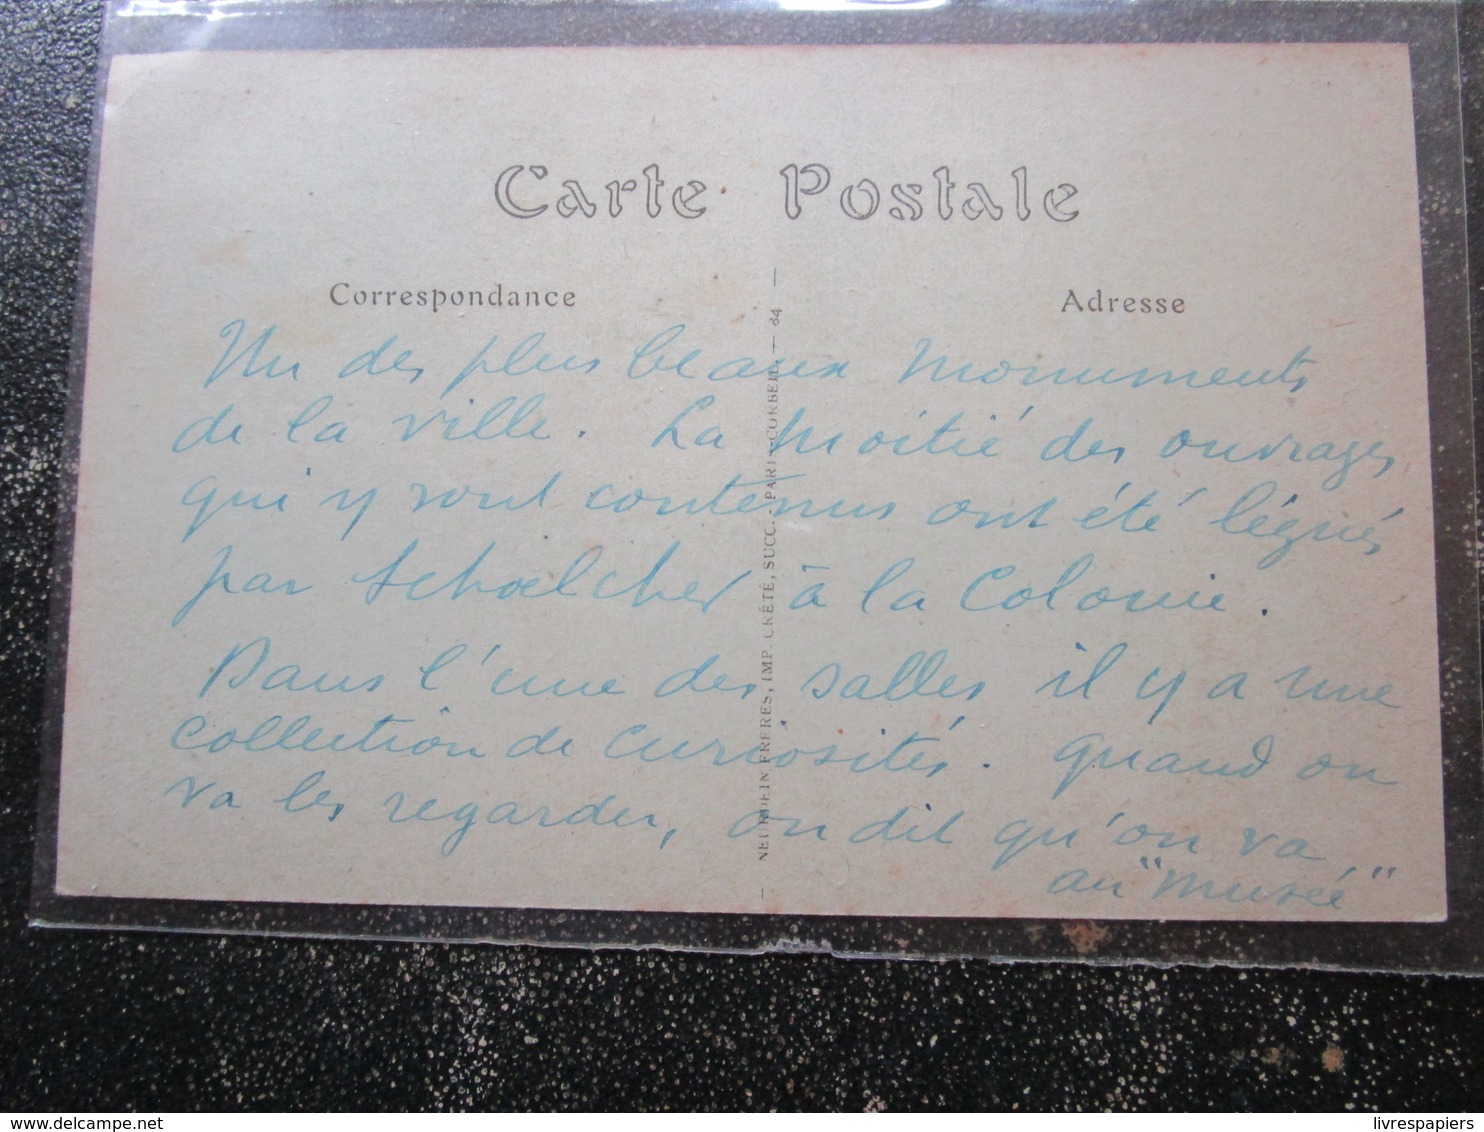 Carte Postale
Correspondance
Adresse
Un des plus beaux monuments
de la ville. La moitié des ouvrages
qui y sont contenus ont été légués
par Schoelcher à la Colonie.
Dans l'une des salles il y a une
collection de curiosités. Quand on
va les regarder, on dit qu'on va
au "Musée"
NEURDEIN FRÈRES, IMP. CRÉTÉ, SUCC. PARIS-CORBEIL. — 84 —
www.delcampe.net
livrespapiers